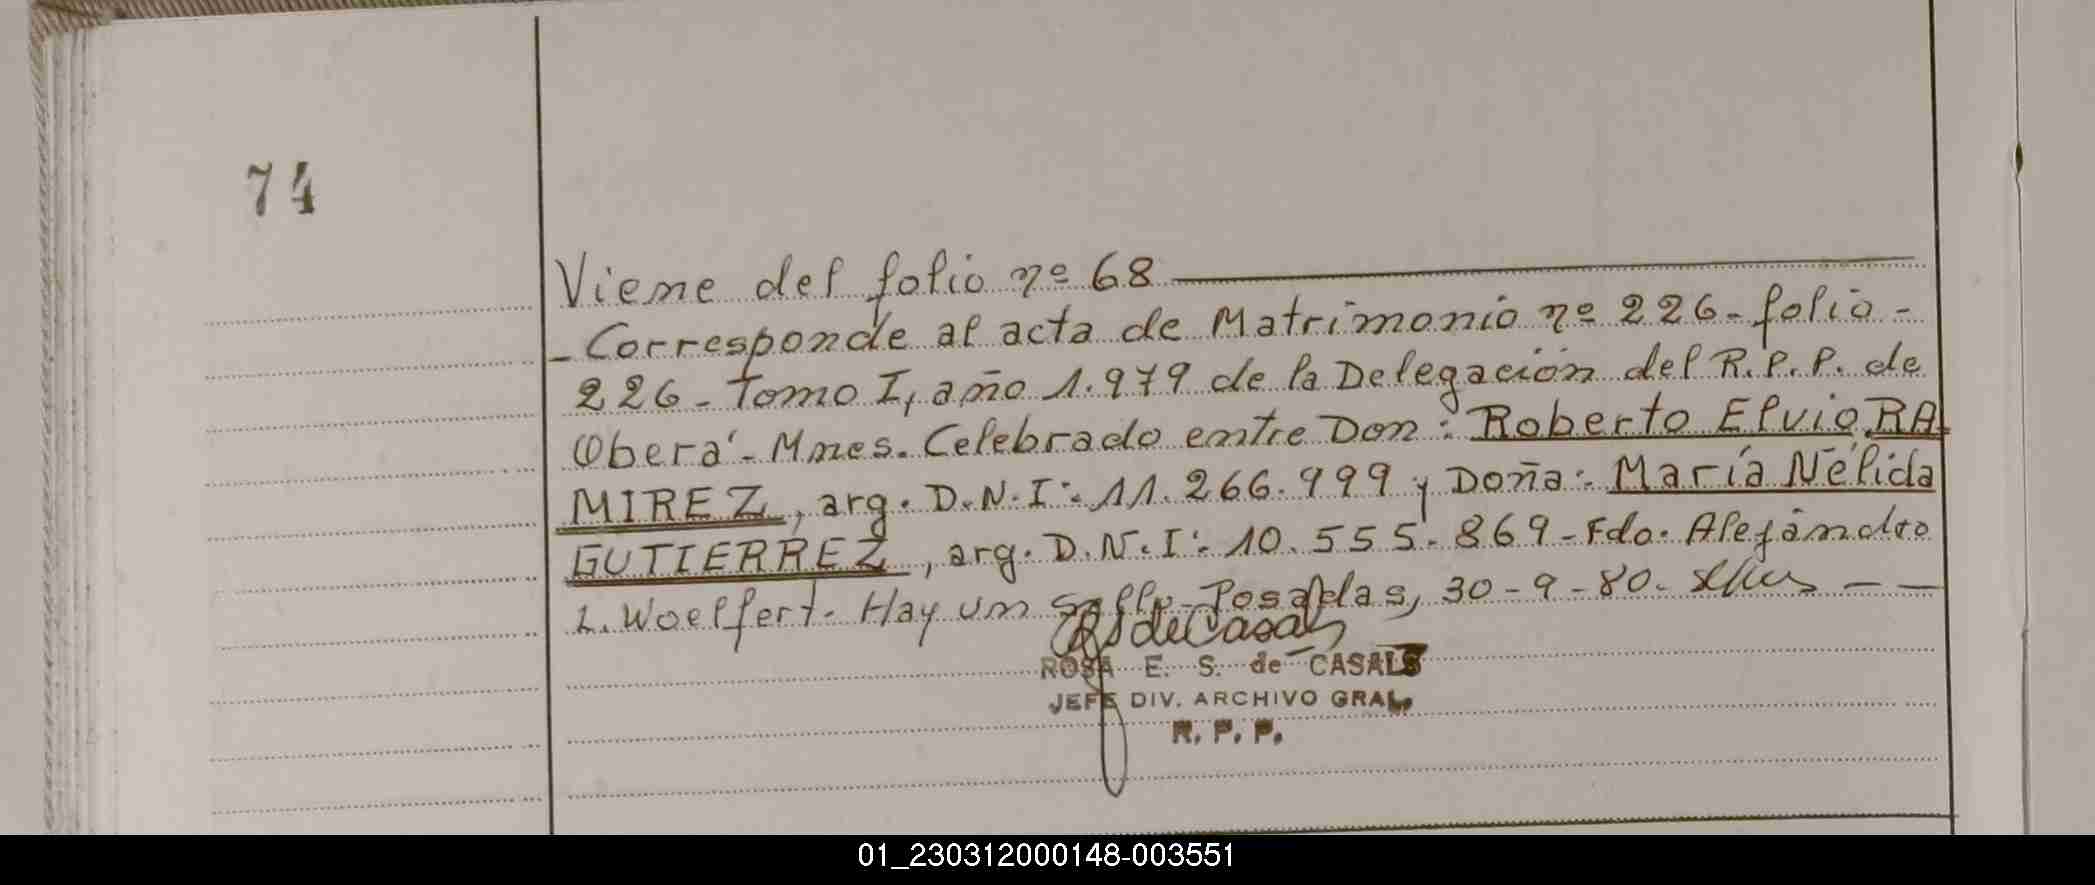 74
Viene del folio nº 68
- Corresponde al acta de Matrimonio nº 226 - folio -
226 - Tomo I, año 1.979 de la Delegación del R.P.P. de
Oberá - Mnes. Celebrado entre Don: Roberto Elvio RA
MIREZ, arg. D.N.I: 11.266.999 y Doña: María Nélida
GUTIERREZ, arg. D.N.I: 10.555.869 - Fdo. Alejandro
L. Woelfert - Hay un sello - Posadas, 30-9-80.
ROSA E. S. de CASALS
JEFE DIV. ARCHIVO GRAL.
R. P. P.
01_230312000148-003551